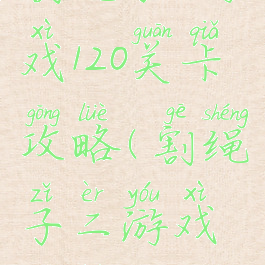 xì guān qiǎ
戏120关卡
gōng lüè gē shéng
攻略(割绳
zǐ èr yóu xì
子二游戏